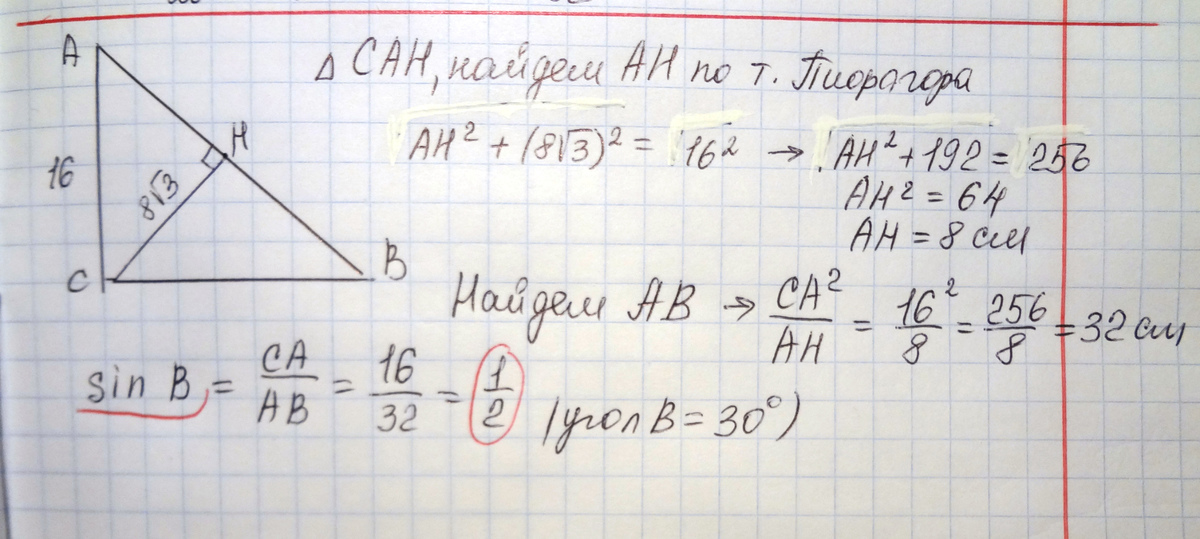 A
H
16
8√3
C
B
△ CAH, найдем AH по т. Пифагора
√AH² + (8√3)² = √16² → √AH² + 192 = √256
AH² = 64
AH = 8 см
Найдем AB → CA²/AH = 16²/8 = 256/8 = 32 см
sin B = CA/AB = 16/32 = 1/2 (угол B = 30°)